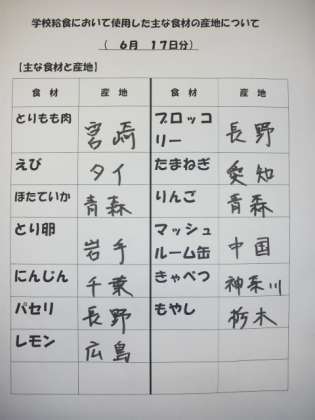 学校給食において使用した主な食材の産地について
( 6月 17日分)
【主な食材と産地】
食材 産地 食材 産地
とりもも肉 宮崎 ブロッコ
リー 長野
えび タイ たまねぎ 愛知
ほたていか 青森 りんご 青森
とり卵 岩手 マッシュ
ルーム缶 中国
にんじん 千葉 きゃべつ 神奈川
パセリ 長野 もやし 栃木
レモン 広島